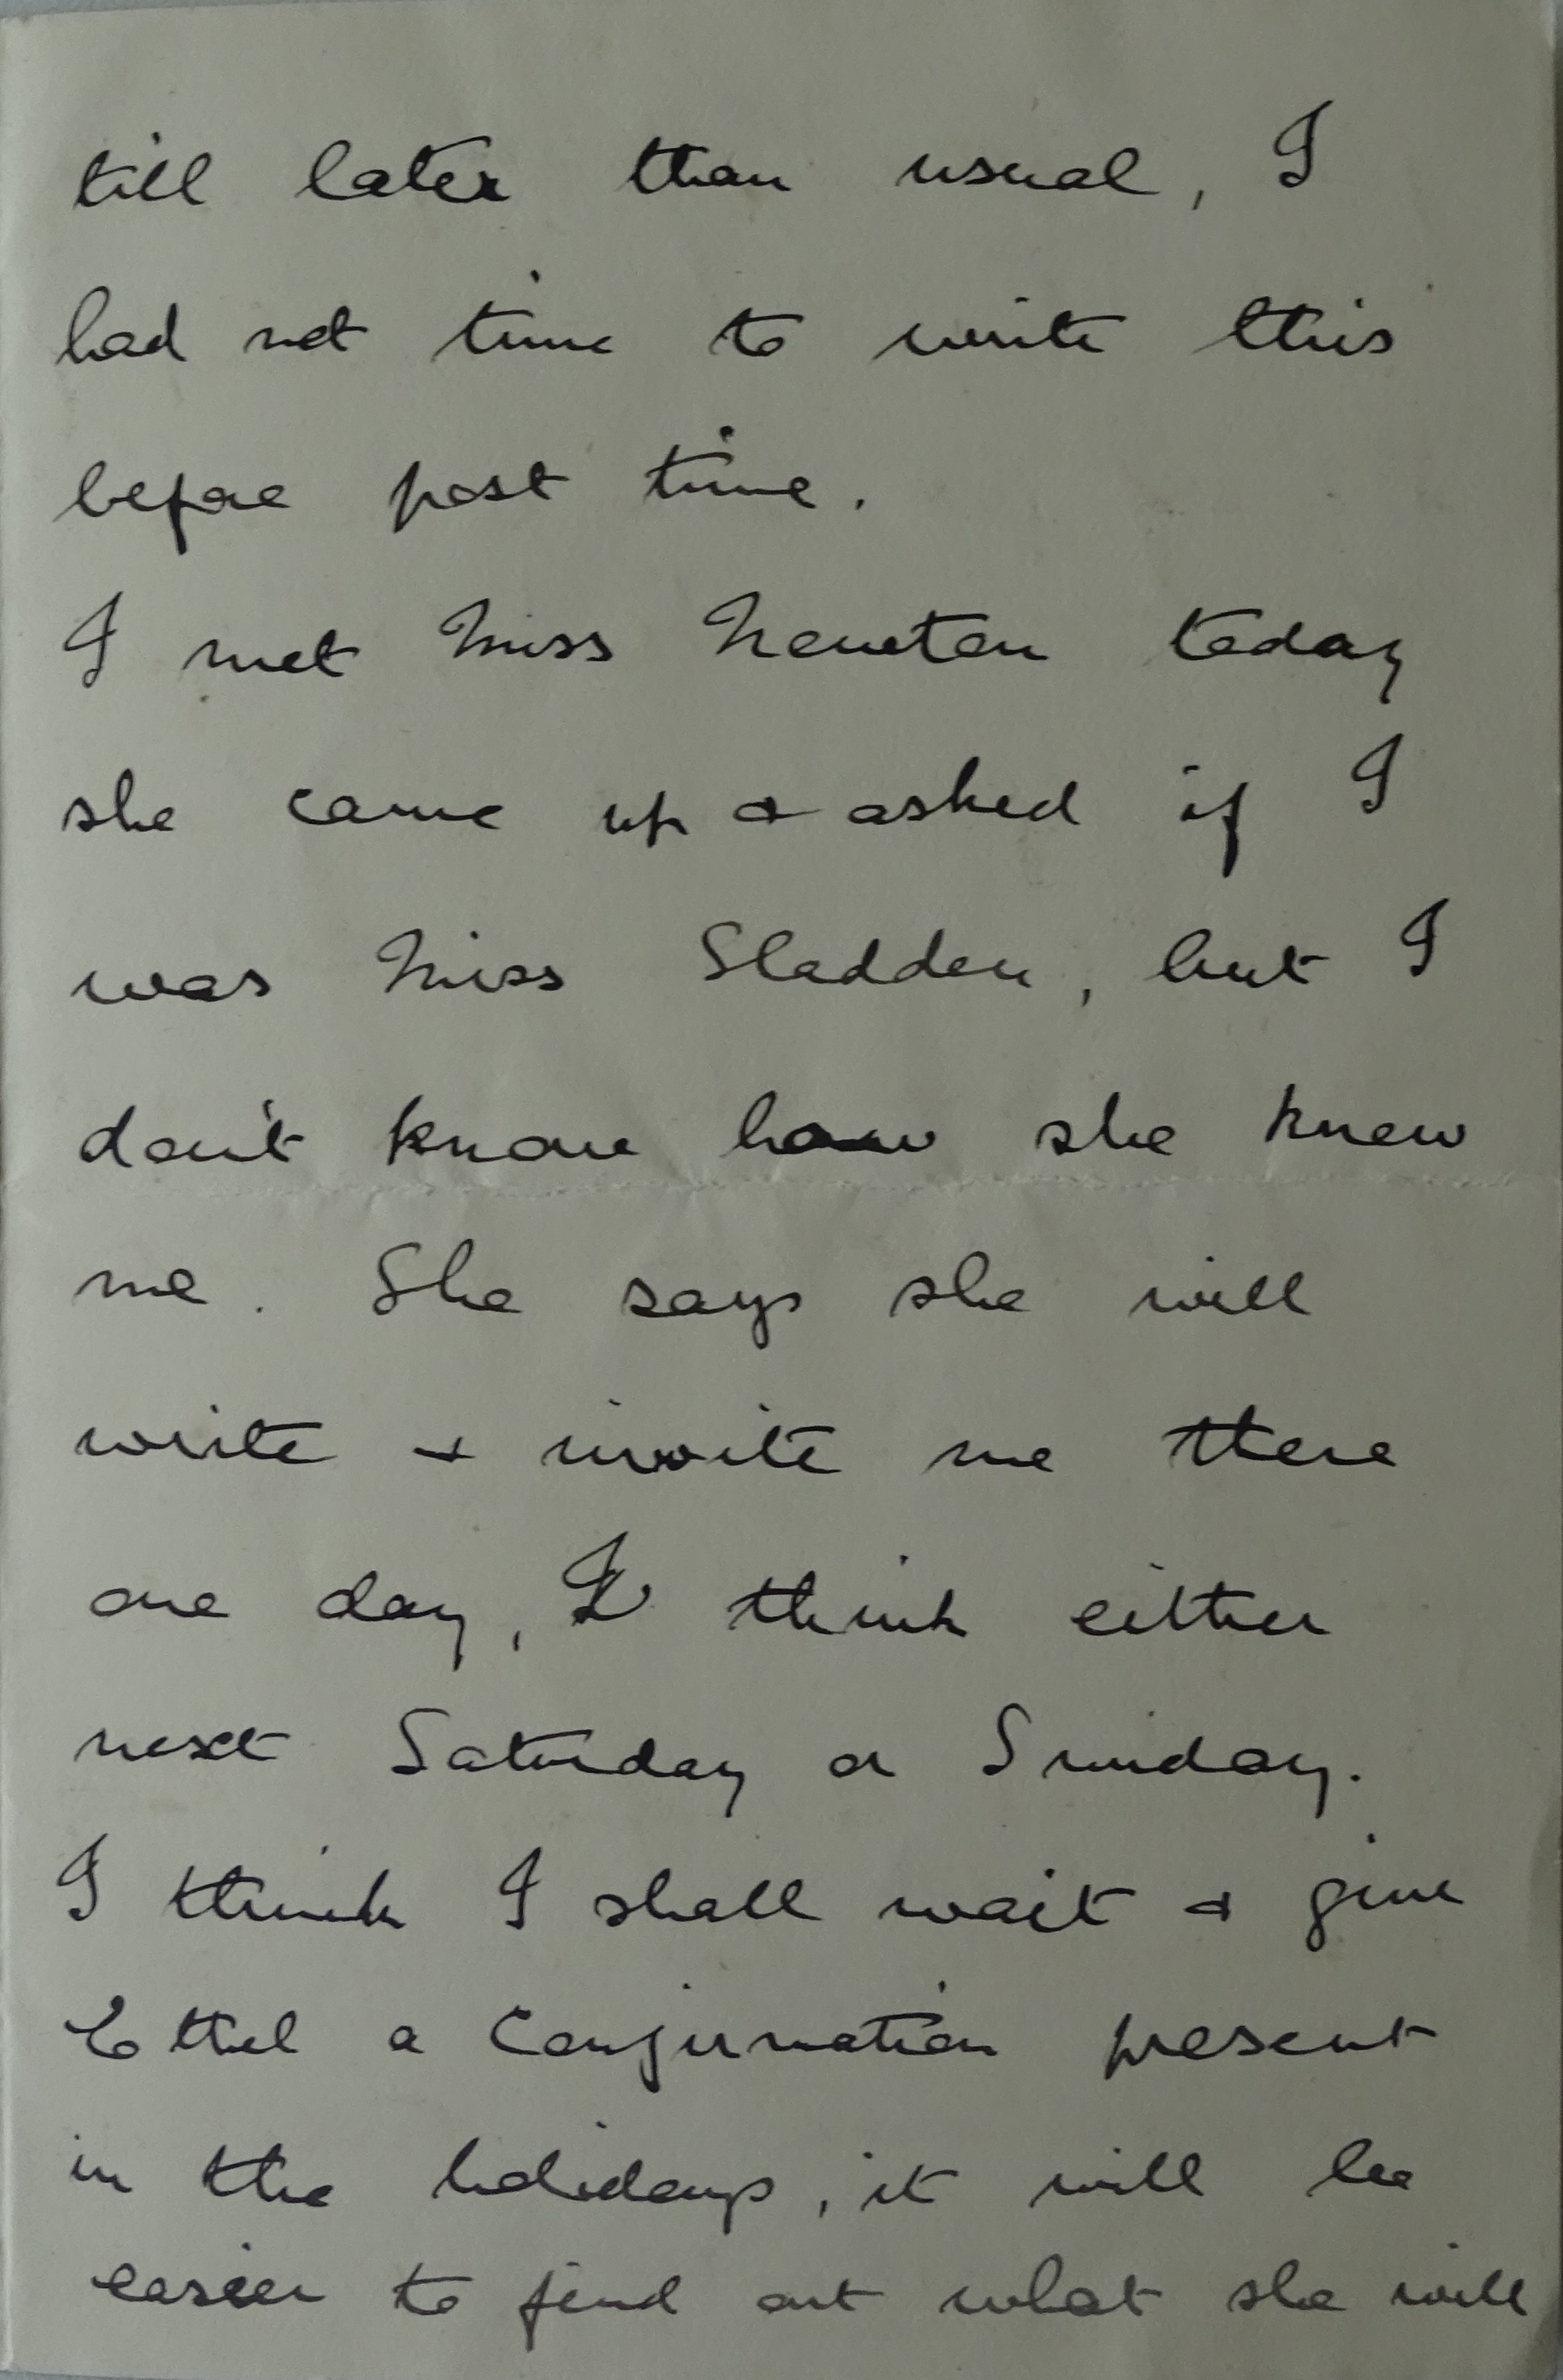 till later than usual, I
had not time to write this
before post time.
I met Miss Newton today
she came up & asked if I
was Miss Sladden, but I
don't know how she knew
me. She says she will
write & invite me there
one day, I think either
next Saturday or Sunday.
I think I shall wait & give
Ethel a Confirmation present
in the holidays, it will be
easier to find out what she will